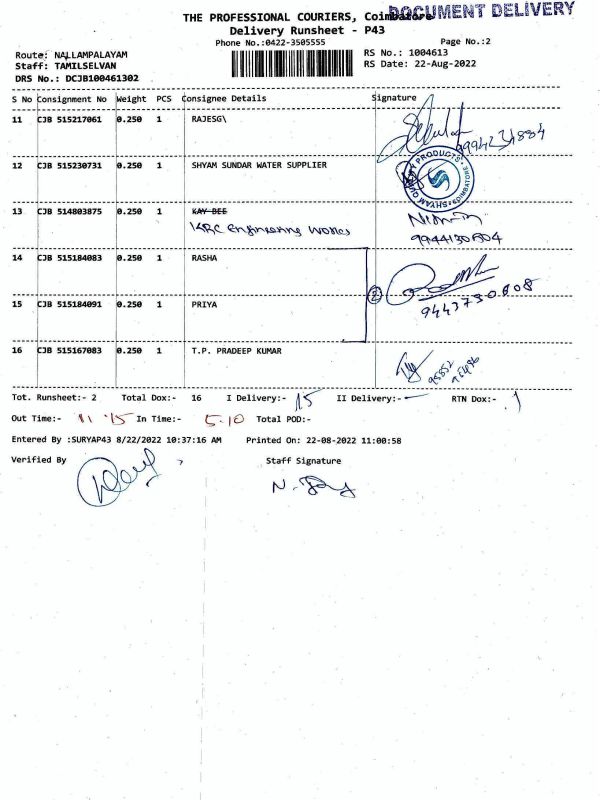 THE PROFESSIONAL COURIERS, Coimbatore
DOCUMENT DELIVERY
Delivery Runsheet - P43
Phone No.:0422-3505555 Page No.:2
Route: NALLAMPALAYAM RS No.: 1004613
Staff: TAMILSELVAN RS Date: 22-Aug-2022
DRS No.: DCJB100461302
S No Consignment No Weight PCS Consignee Details Signature
11 CJB 515217061 0.250 1 RAJESG\
9994231884
12 CJB 515230731 0.250 1 SHYAM SUNDAR WATER SUPPLIER
SHYAM QUALITY PRODUCTS COIMBATORE
13 CJB 514803875 0.250 1 KAY BEE
KRC Engineering Works
9944130504
14 CJB 515184083 0.250 1 RASHA
2
9443730808
15 CJB 515184091 0.250 1 PRIYA
16 CJB 515167083 0.250 1 T.P. PRADEEP KUMAR
Tot. Runsheet:- 2 Total Dox:- 16 I Delivery:- 15 II Delivery:- - RTN Dox:- 1
Out Time:- 11 '15 In Time:- 5.10 Total POD:-
Entered By :SURYAP43 8/22/2022 10:37:16 AM Printed On: 22-08-2022 11:00:58
Verified By Staff Signature